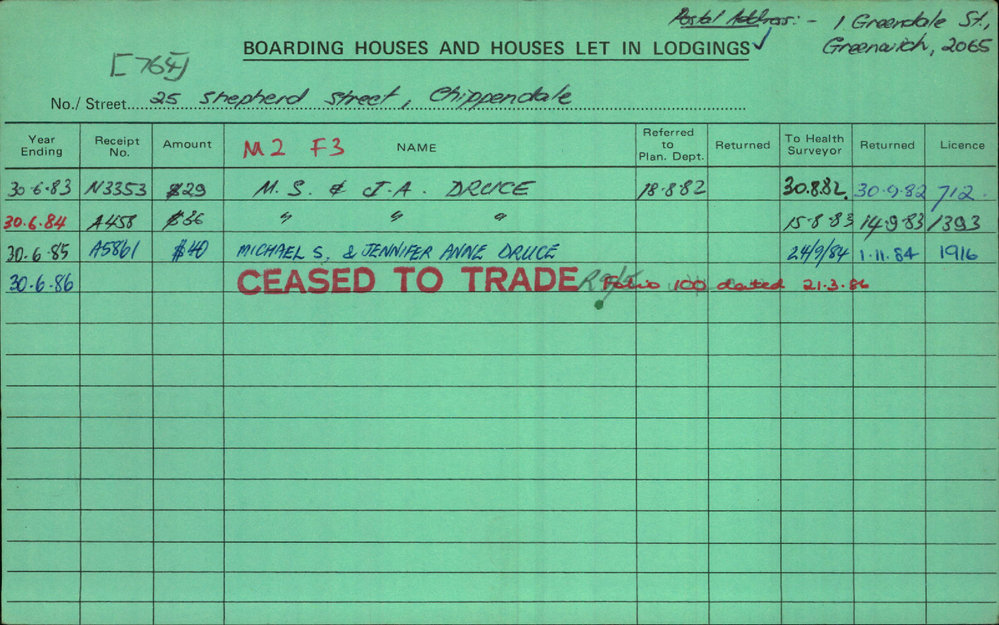 Postal Address:- 1 Greendale St.,
Greenwich, 2065
BOARDING HOUSES AND HOUSES LET IN LODGINGS ✓
[764]
No./ Street 25 Shepherd Street, Chippendale
Year Ending Receipt No. Amount M2 F3 NAME Referred to Plan. Dept. Returned To Health Surveyor Returned Licence
30.6.83 N3353 $29 M.S. & J.A. DRUCE 18.8.82 30.8.82. 30.9.82 712.
30.6.84 A458 $36 " " " 15-8-83 14.9.83 1393
30.6.85 A5861 $40 MICHAEL S. & JENNIFER ANNE DRUCE 24/9/84 1.11.84 1916
30.6.86 CEASED TO TRADE Folio 100 dated 21.3.86